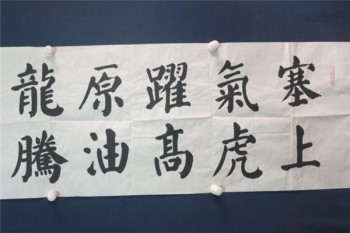 塞上
氣虎
躍髙
原油
龍騰